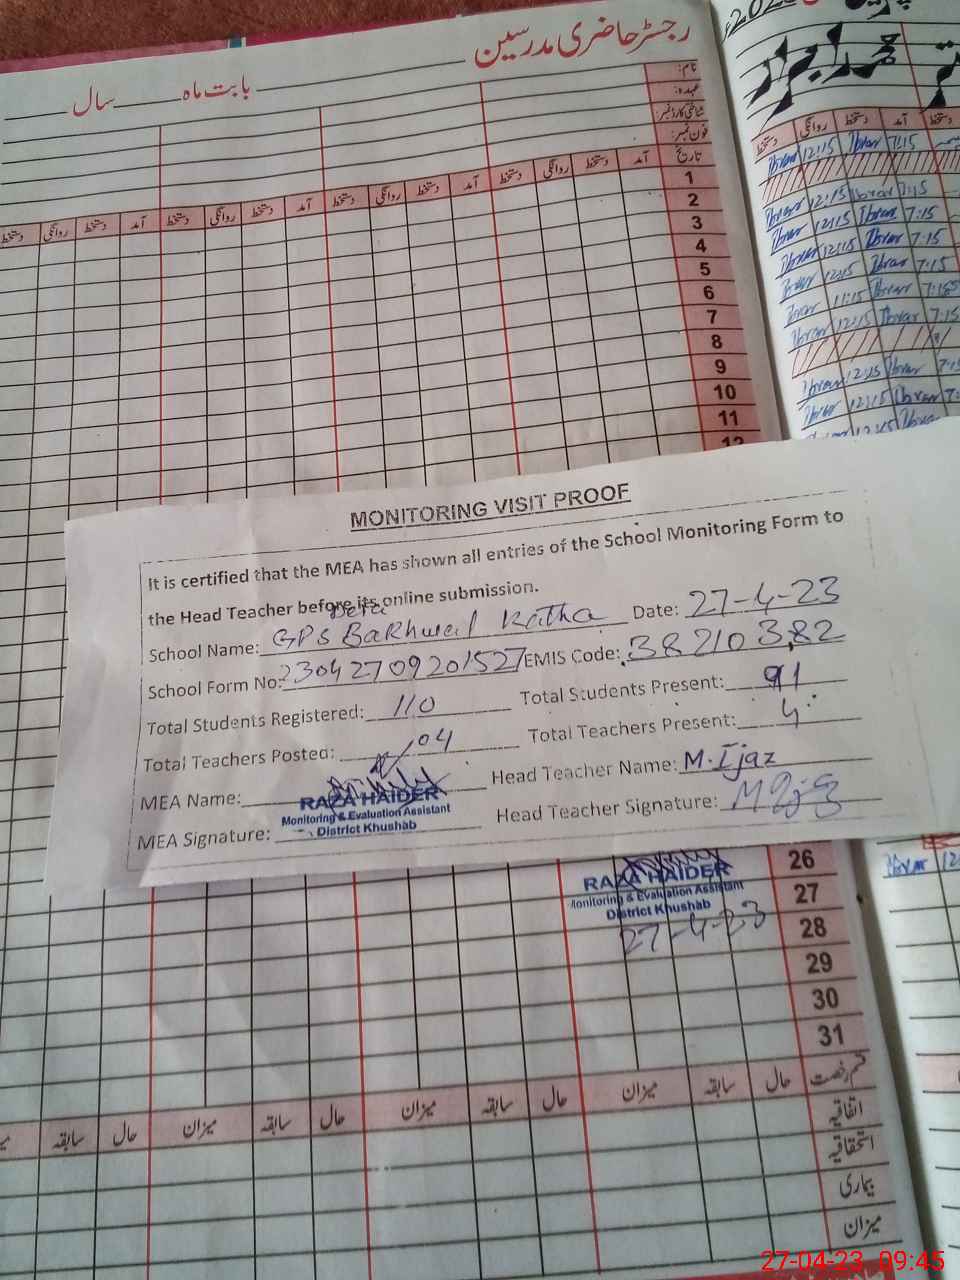 رجسٹر حاضری مدرسین
بابت ماہ سال
نام:
عہدہ:
شناختی کارڈ نمبر:
فون نمبر:
تاریخ آمد دستخط روانگی دستخط آمد دستخط روانگی دستخط آمد دستخط روانگی دستخط
1
2
3
4
5
6
7
8
9
10
11
12
دستخط روانگی دستخط آمد دستخط
Ibrar 12:15 Ibrar 7:15
Ibrar 12:15 Ibrar 7:15
Ibrar 12:15 Ibrar 7:15
Ibrar 12:15 Ibrar 7:15
Ibrar 12:15 Ibrar 7:15
Ibrar 11:15 Ibrar 7:15
Ibrar 12:15 Ibrar 7:15
Ibrar 12:15 Ibrar 7:15
Ibrar 12:15 Ibrar 7:
Ibrar 12:15 Ibrar
MONITORING VISIT PROOF
It is certified that the MEA has shown all entries of the School Monitoring Form to
the Head Teacher before its online submission.
School Name: GPS Dera Bakhwal Katha Date: 27-4-23
School Form No: 23042709201527 EMIS Code: 38210382
Total Students Registered: 110 Total Students Present: 91
Total Teachers Posted: 04 Total Teachers Present: 4
MEA Name: Head Teacher Name: M.Ijaz
MEA Signature: Head Teacher Signature:
RAZA HAIDER
Monitoring & Evaluation Assistant
District Khushab
26
27
28
29
30
31
RAZA HAIDER
Monitoring & Evaluation Assistant
District Khushab
27-4-23
Ibrar 12
قسم رخصت حال سابقہ میزان حال سابقہ میزان حال سابقہ میزان حال سابقہ
اتفاقیہ
استحقاقیہ
بیماری
میزان
27-04-23 09:45